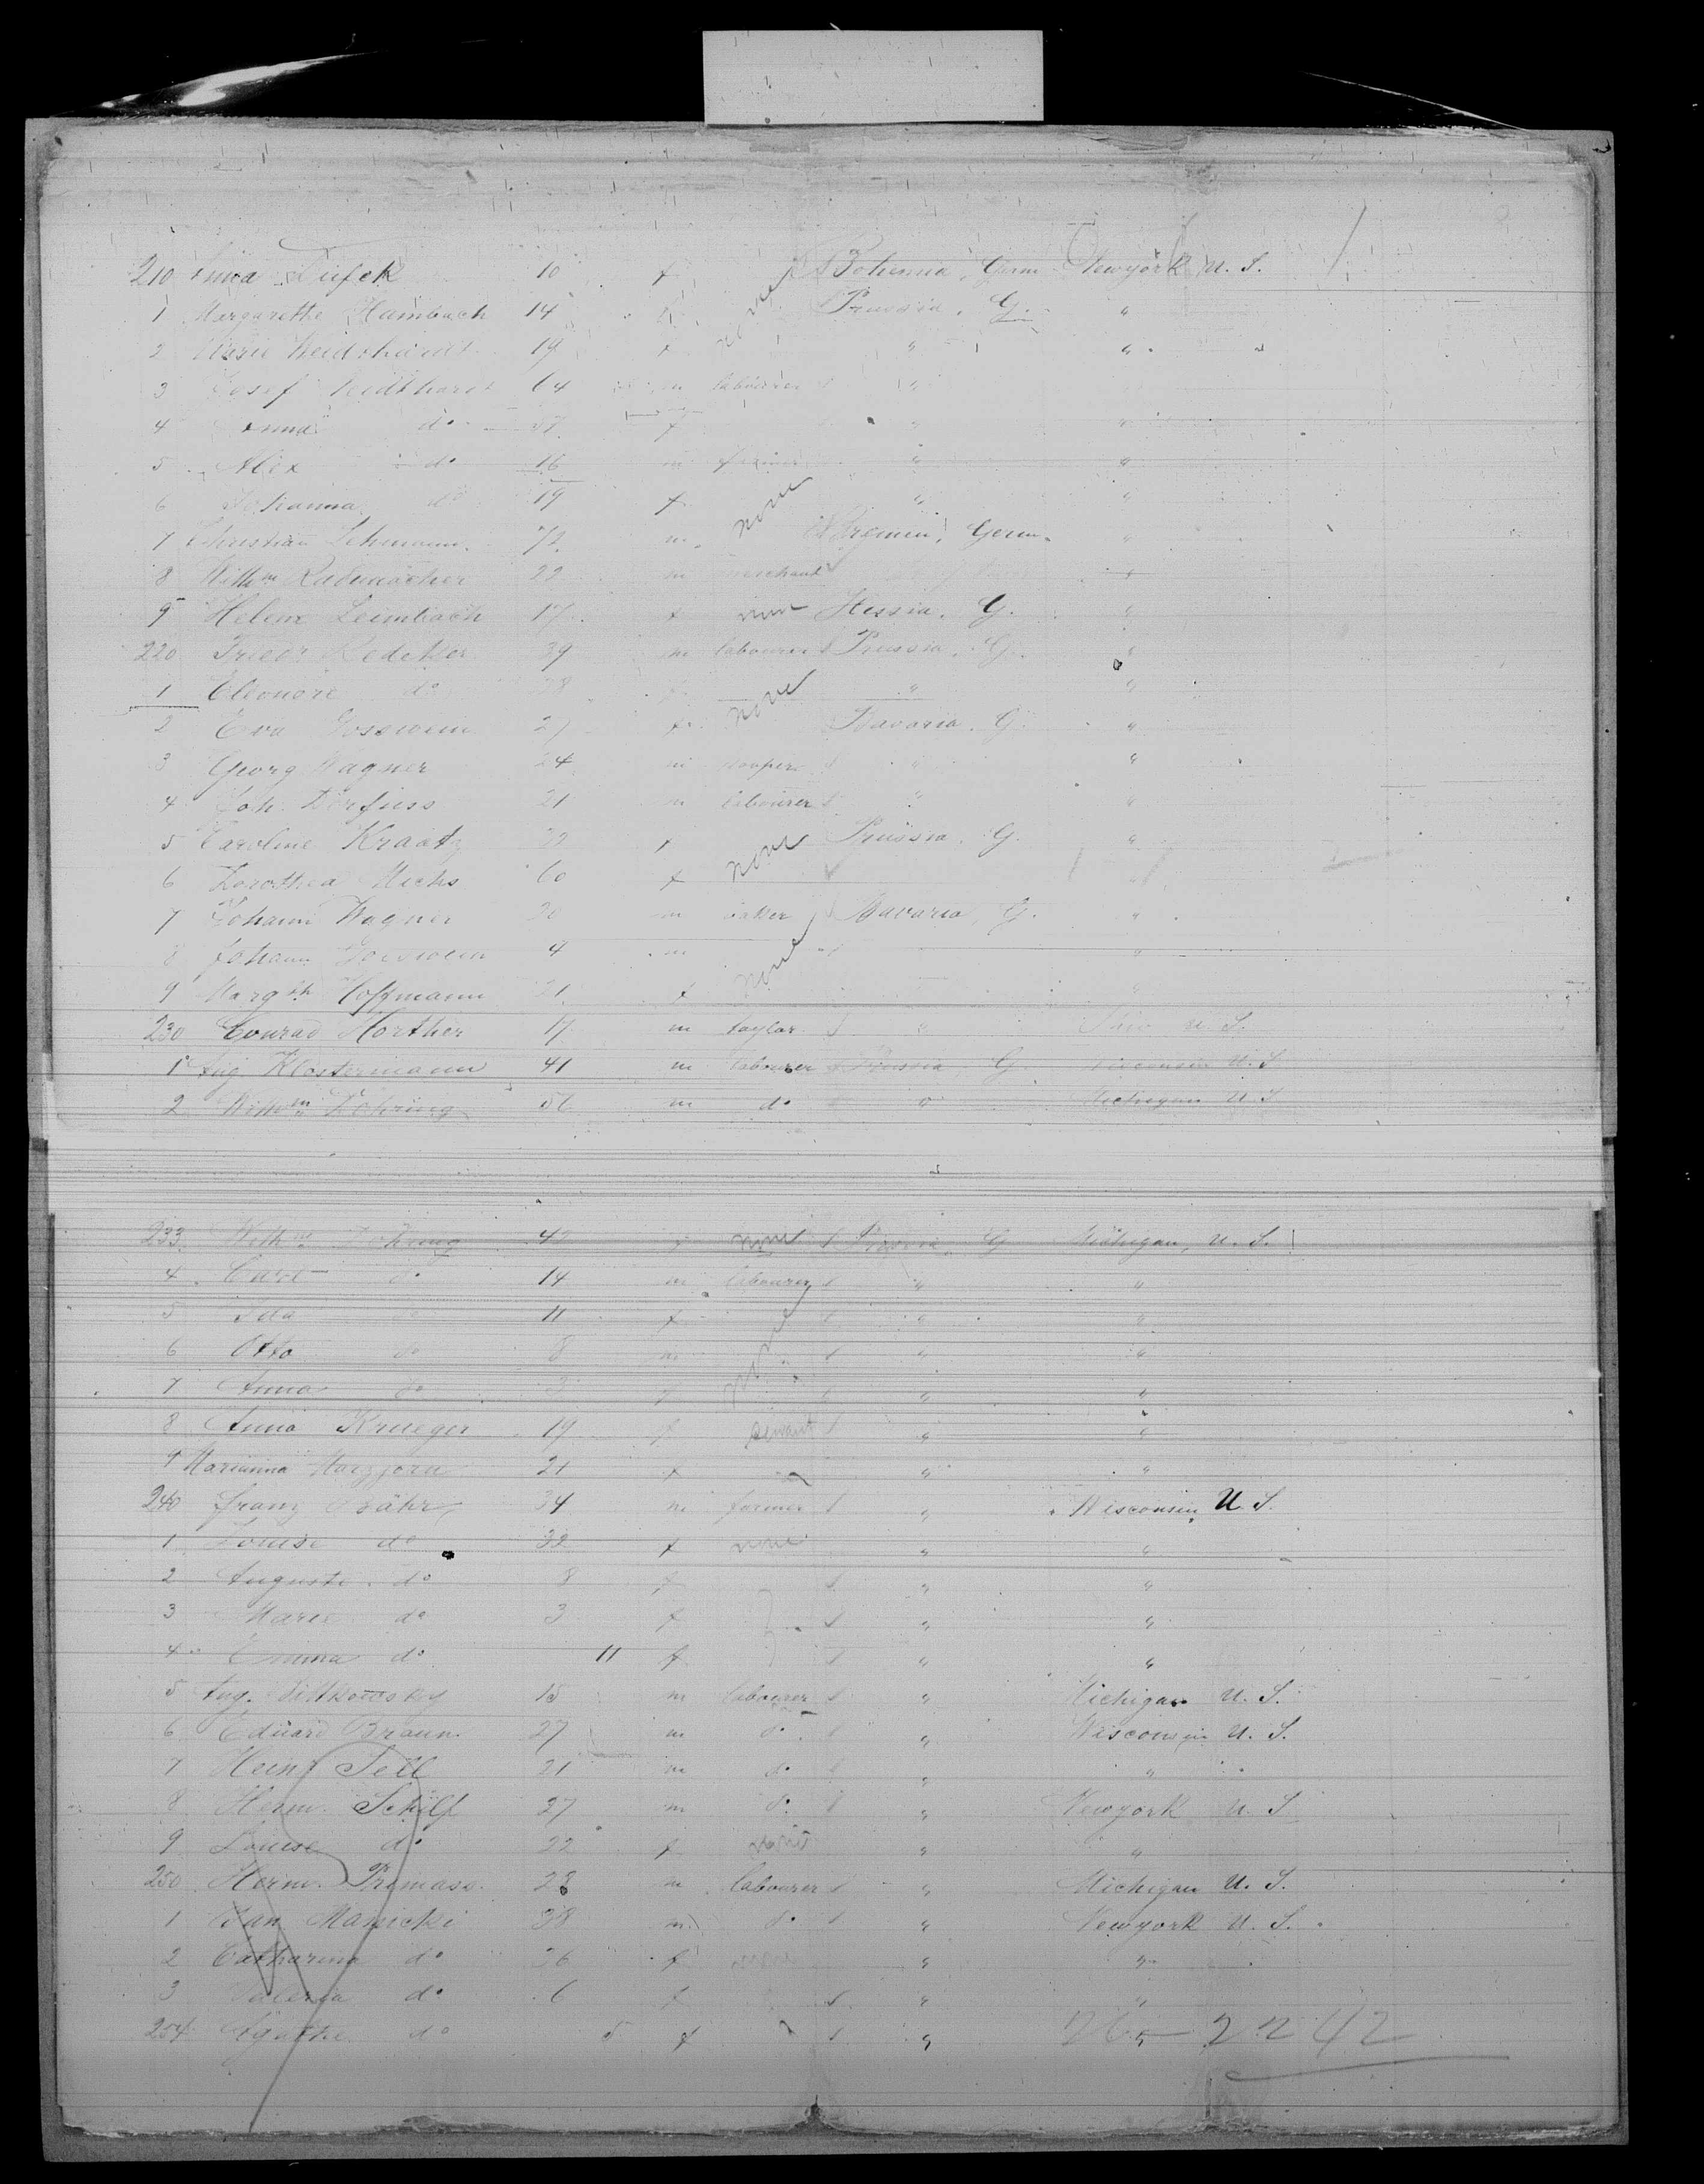 210 Anna Tufek 10 f Bohemia, Germ. Newyork U. S.
1 Margarethe Hambach 14 f none Prussia, G. "
2 Marie 19 f " "
3 Josef 64 m labourer "
4 Anna do 57 f " "
5 Alex do 16 m " "
6 Johanna do 19 f " "
7 Christian Lehmann 72 m none Bremen, Germ. "
8 Wilhm Rademacher 22 m merchant "
9 Helene Leimbach 17 f none Hessia, G. "
220 Friedr Redeker 39 m labourer Prussia, G. "
1 Eleonore do 38 f " "
2 Eva Gosswein 27 f none Bavaria, G. "
3 Georg Wagner 24 m " "
4 Joh. Dorfuss 21 m labourer " "
5 Caroline Kraatz 22 f Prussia, G. "
6 Dorothea Michs 60 f none "
7 Johann Wagner 20 m baker Bavaria, G. "
8 Johann Gosswein 4 m "
9 Margth Hoffmann 21 f none "
230 Conrad Morther 17 m taylor " Ohio U. S.
1 Aug. Klostermann 41 m labourer Prussia, G. Wisconsin U. S.
2 Wilhm Döhring 56 m do " Michigan U. S.
233 Wilhme Döhring 42 f none Prussia, G. Michigan, U. S.
4 Carl do 14 m labourer " "
5 Ida do 11 f " "
6 Otto do 8 m none " "
7 Anna do 3 f " "
8 Anna Krueger 19 f servant " "
9 Marianna 21 f " "
240 Franz Bähr 34 m farmer " Wisconsin U. S.
1 Louise do 32 f none " "
2 Auguste do 8 f " "
3 Marie do 3 f " "
4 Emma do 11 f " "
5 Aug. Wittkowsky 15 m labourer " Michigan U. S.
6 Eduard Braun 27 m do " Wisconsin U. S.
7 Heinr Sell 21 m do " "
8 Herm. Schilf 27 m do " Newyork U. S.
9 Louise do 22 f none " "
250 Herm. Promass 28 m labourer " Michigan U. S.
1 Jan Manicki 38 m do " Newyork U. S.
2 Catharina do 26 f none " "
3 Valeria do 6 f " "
254 Agathe do 5 f " "